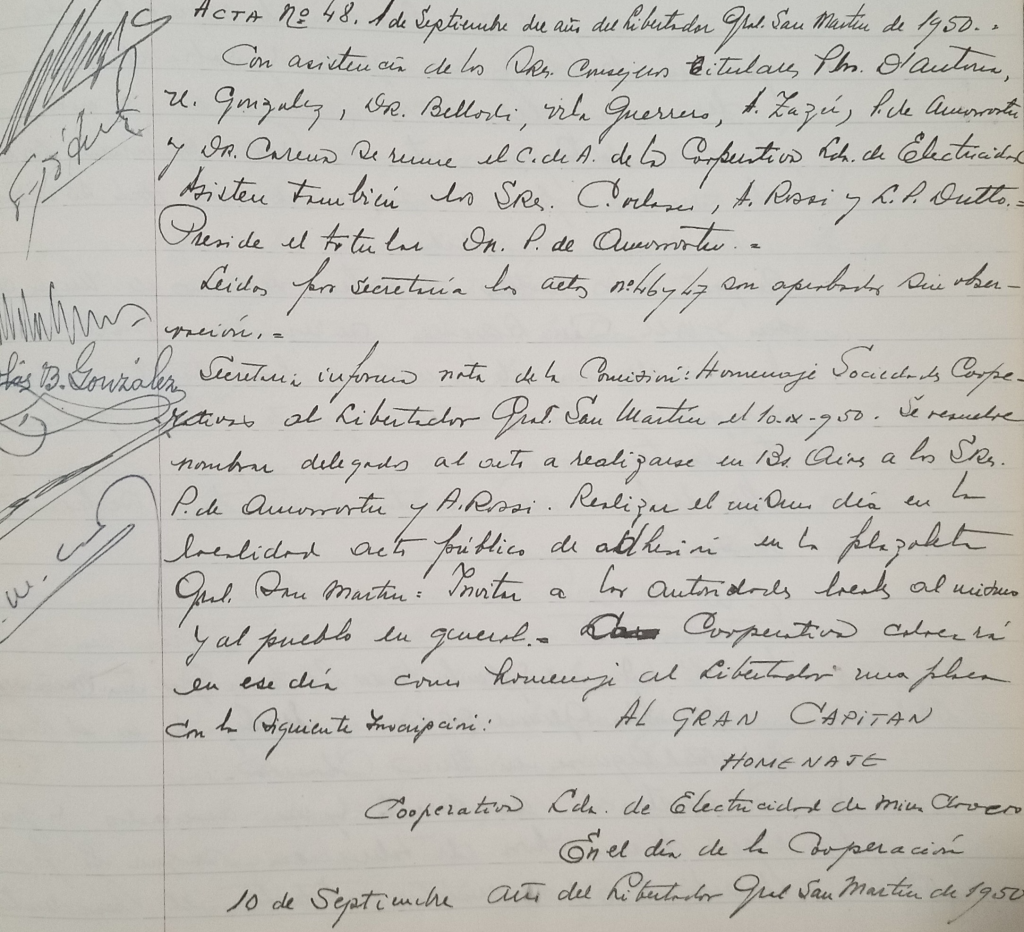 ACTA Nº 48. 1 de Septiembre del año del Libertador Gral. San Martín de 1950.=
Con asistencia de los Sres. Consejeros titulares D'autoria,
N. Gonzalez, Dr. Bellodi, Vila Guerrero, A. Zazú, P. de Amorrortu
y Dr. Carena se reune el C. de A. de la Cooperativa Lda. de Electricidad
Asisten también los SRes. A. Rossi y L. P. Dutto.=
Preside el titular Dn. P. de Amorrortu.=
Leidas por secretaría las actas nº 46 y 47 son aprobadas sin obser-
vación.=
B. González
Secretaria informa nota de la Comisión: Homenaje Sociedades Coope-
rativas al Libertador Gral. San Martín el 10-IX-950. Se resuelve
nombrar delegados al acto a realizarse en Bs. Aires a los SRes.
P. de Amorrortu y A. Rossi. Realizar el mismo día en la
localidad acto público de adhesión en la plazoleta
Gral. San Martín= Invitar a las autoridades locales al mismo
y al pueblo en general.= Cooperativa colocará
en ese día como homenaje al Libertador una placa
con la siguiente Inscripción: AL GRAN CAPITAN
HOMENAJE
Cooperativa Lda. de Electricidad de Mina Clavero
En el día de la Cooperación
10 de Septiembre año del Libertador Gral San Martín de 1950